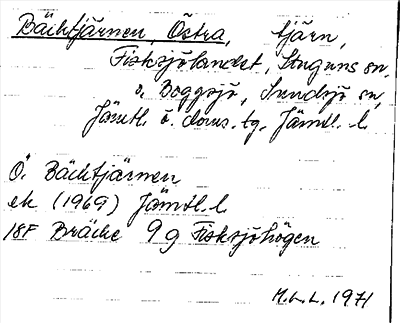 Bäcktjärnen, Östra, tjärn,
Fisksjölandet, Stuguns sn,
o. Boggsjö, Sundsjö sn,
Jämtl. ö. doms. tg. Jämtl. l.
Ö. Bäcktjärnen
ek (1969) Jämtl. l.
18F Bräcke 9g Fisksjöhögen
M.L.L. 1971